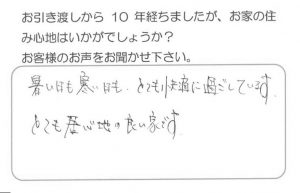 お引き渡しから 10 年経ちましたが、お家の住
み心地はいかがでしょうか？
お客様のお声をお聞かせ下さい。
暑い日も寒い日も、とても快適に過ごしています。
とても居心地の良い家です。